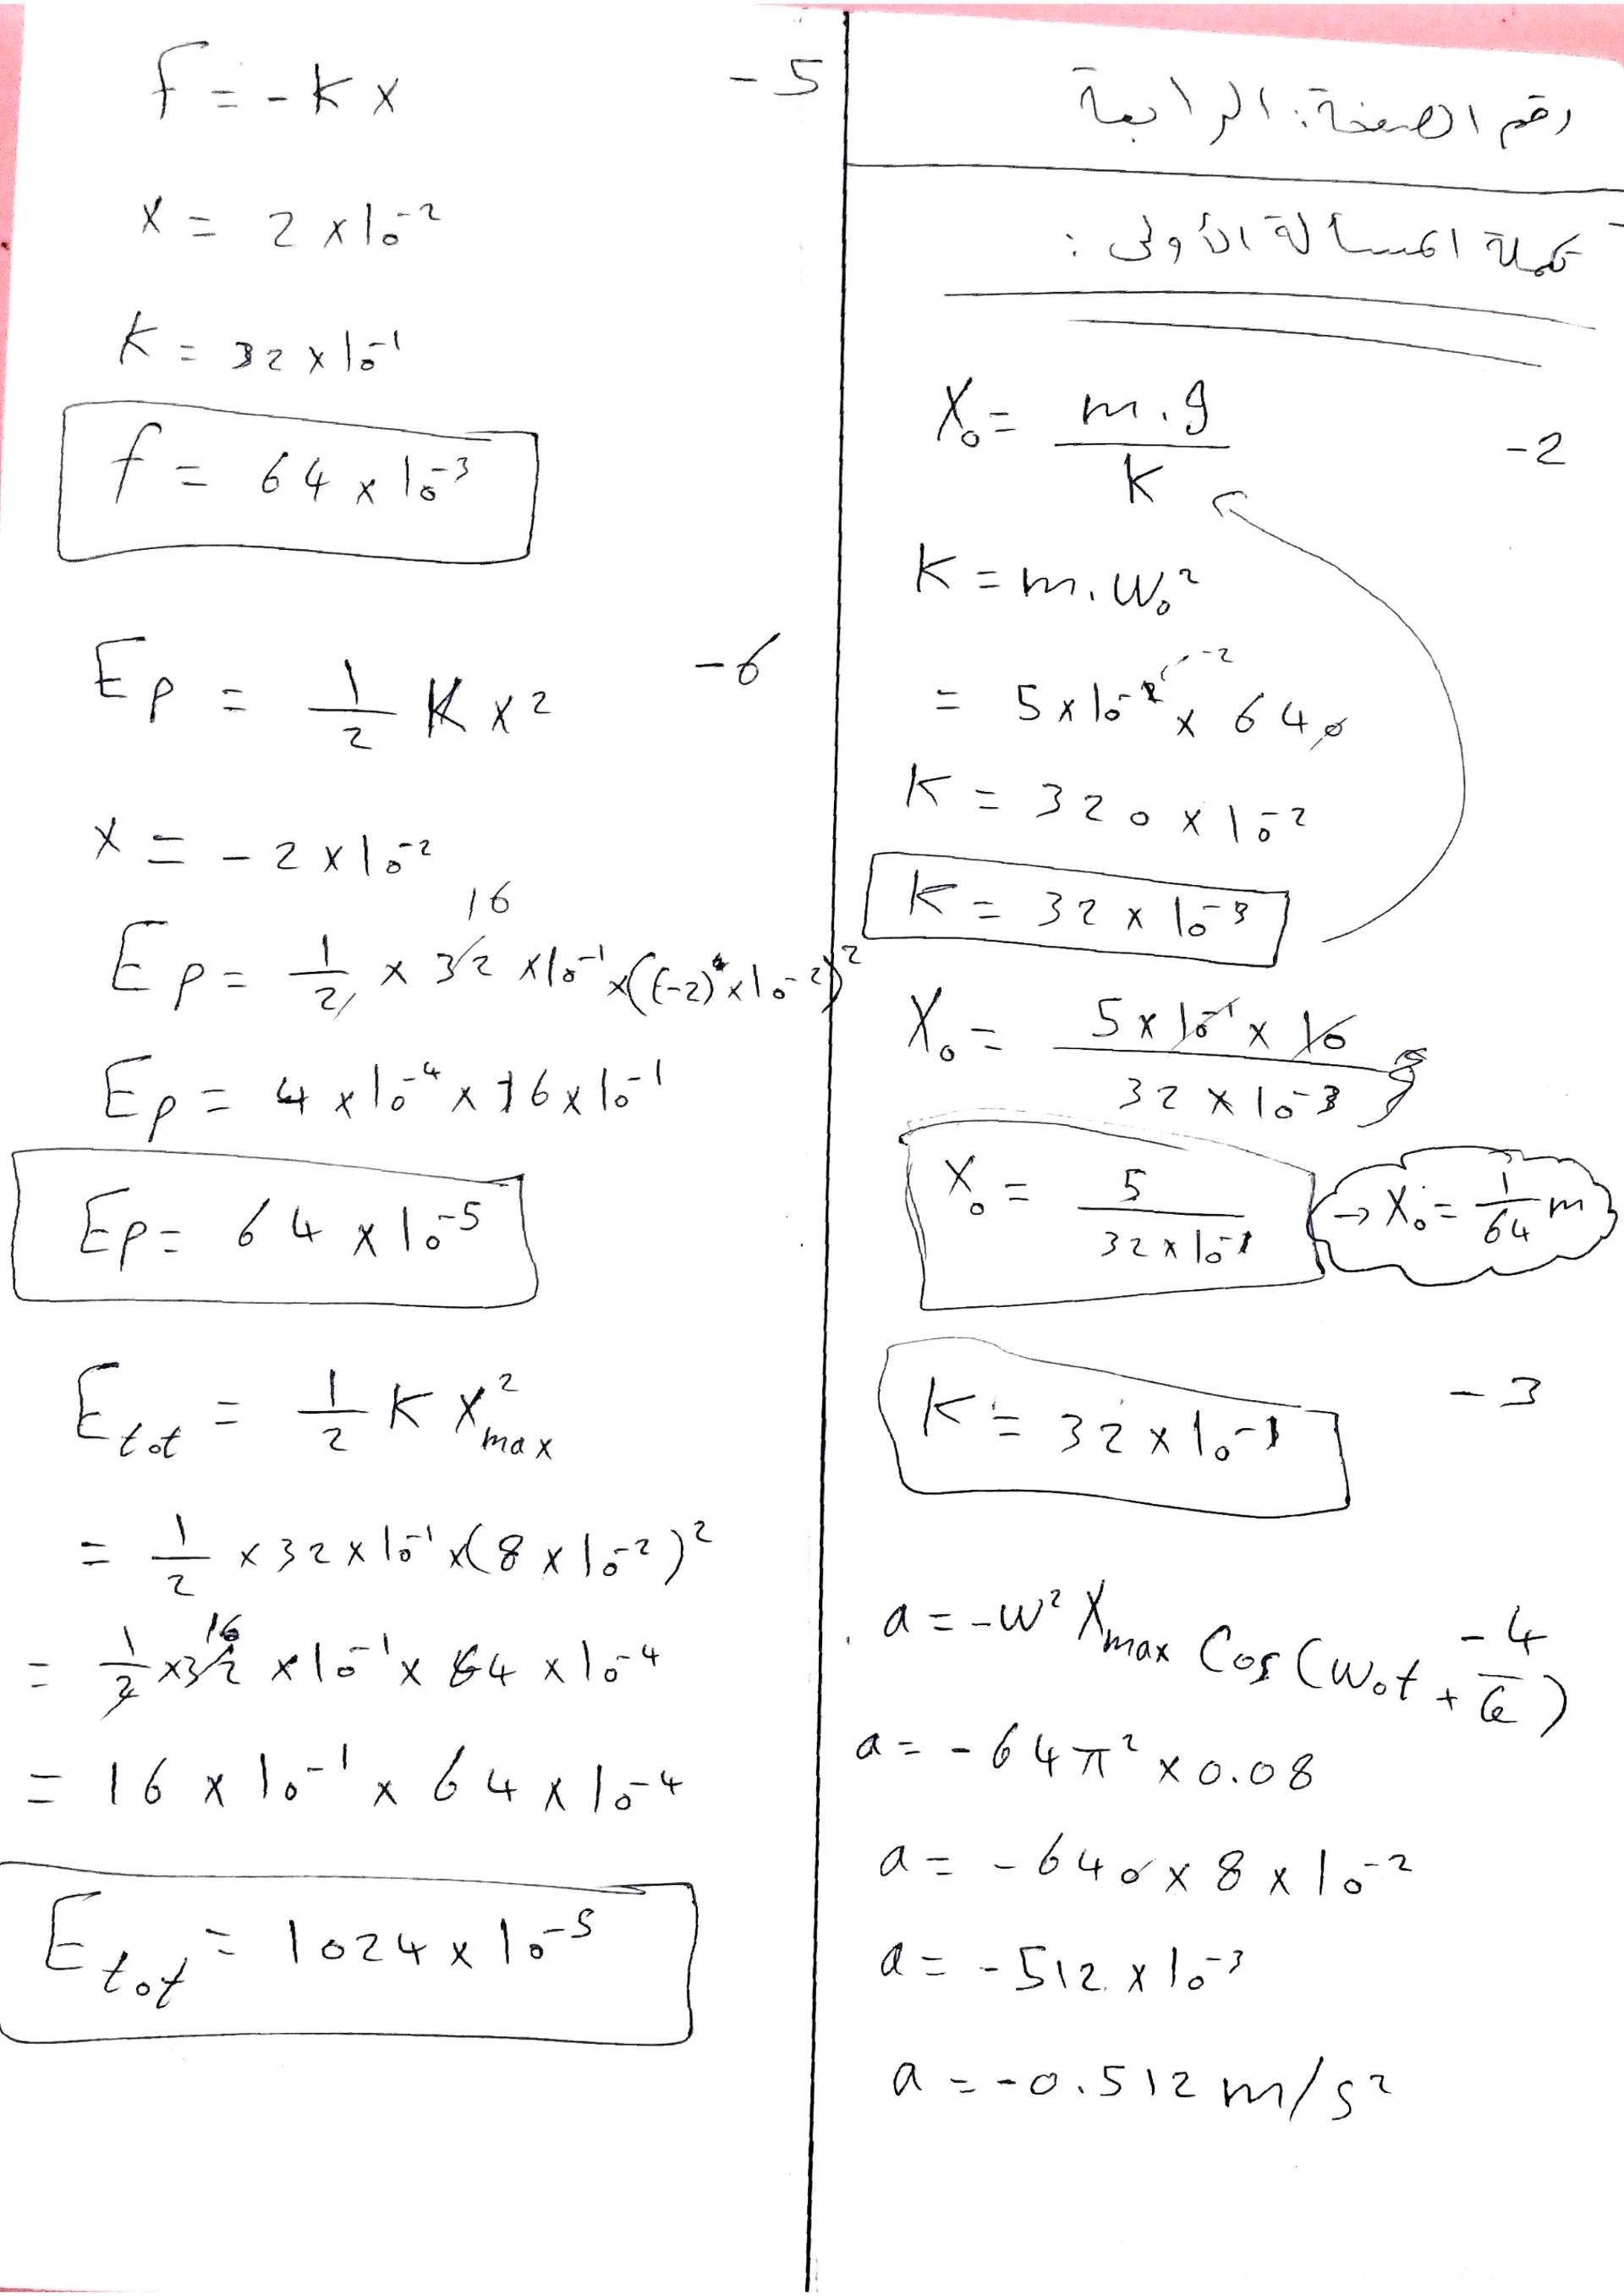 رقم الصفحة: الرابعة
تكملة المسألة الأولى :
-2
X₀ = m.g / K
K = m.W₀²
= 5 x 10⁻² x 640
K = 320 x 10⁻²
K = 32 x 10⁻³
X₀ = 5 x 10⁻¹ x 10 / 32 x 10⁻³
X₀ = 5 / 32 x 10⁻¹ → X₀ = 1/64 m
-3
K = 32 x 10⁻¹
-4
a = -w² Xmax Cos (w₀t + φ)
a = -64π² x 0.08
a = -640 x 8 x 10⁻²
a = -512 x 10⁻³
a = -0.512 m/s²
-5
f = -K x
x = 2 x 10⁻²
K = 32 x 10⁻¹
f = 64 x 10⁻³
-6
Ep = 1/2 K x²
x = -2 x 10⁻²
16
Ep = 1/2 x 32 x 10⁻¹ x ((-2) x 10⁻²)²
Ep = 4 x 10⁻⁴ x 16 x 10⁻¹
Ep = 64 x 10⁻⁵
Etot = 1/2 K X²max
= 1/2 x 32 x 10⁻¹ x (8 x 10⁻²)²
16
= 1/2 x 32 x 10⁻¹ x 64 x 10⁻⁴
= 16 x 10⁻¹ x 64 x 10⁻⁴
Etot = 1024 x 10⁻⁵